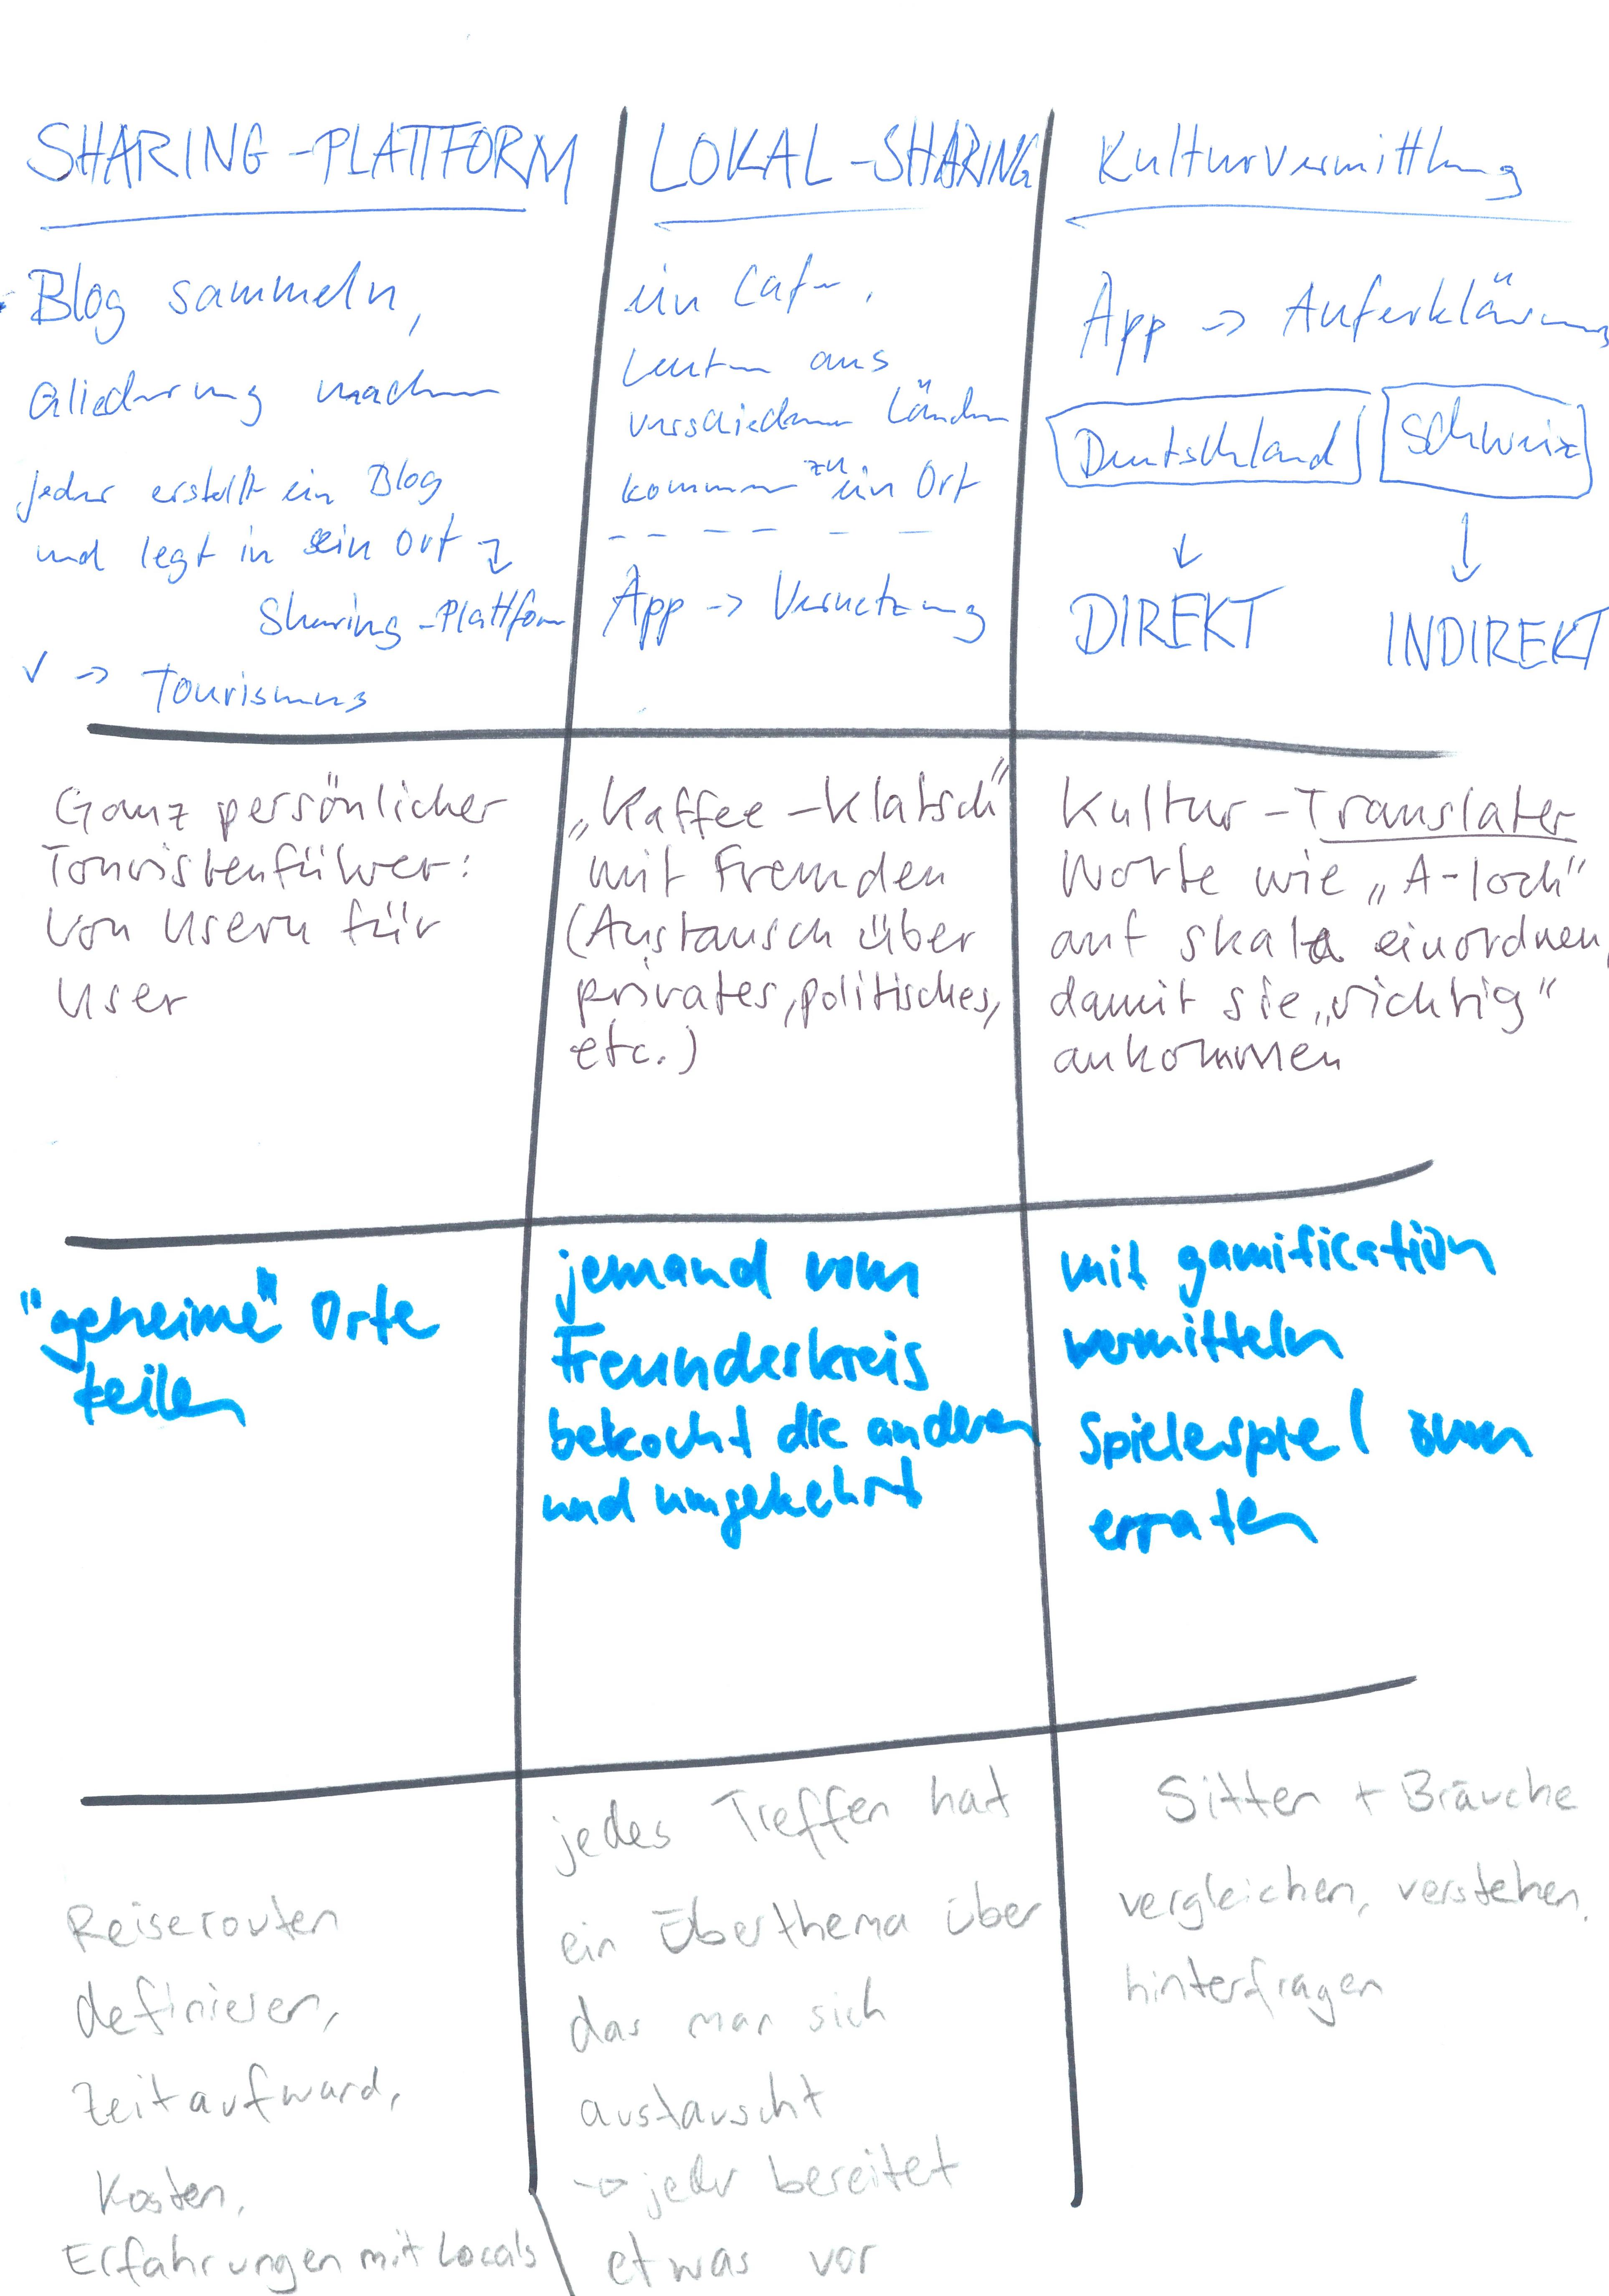 SHARING-PLATTFORM
Blog sammeln,
Gliederung machen
jeder erstellt ein Blog
und legt in sein Ort →
Sharing-Plattform
✓ → Tourismus
LOKAL-SHARING
ein Cafe,
Leute aus
verschiedenen Ländern
kommen zu ein Ort
App → Vernetzung
Kulturvermittlung
App → Auferklärung
Deutschland Schweiz
↓ ↓
DIREKT INDIREKT
Ganz persönlicher
Touristenführer:
von Usern für
User
„Kaffee-Klatsch"
mit Fremden
(Austausch über
privates, politisches,
etc.)
Kultur-Translater
Worte wie „A-loch"
auf Skala einordnen,
damit sie „richtig"
ankommen
"geheime" Orte
teilen
jemand vom
Freundeskreis
bekocht die anderen
und umgekehrt
mit gamification
vermitteln
Spielespiel zum
erraten
Reiserouten
definieren,
Zeitaufwand,
Kosten,
Erfahrungen mit Locals
jedes Treffen hat
ein Überthema über
das man sich
austauscht
→ jeder bereitet
etwas vor
Sitten + Bräuche
vergleichen, verstehen,
hinterfragen